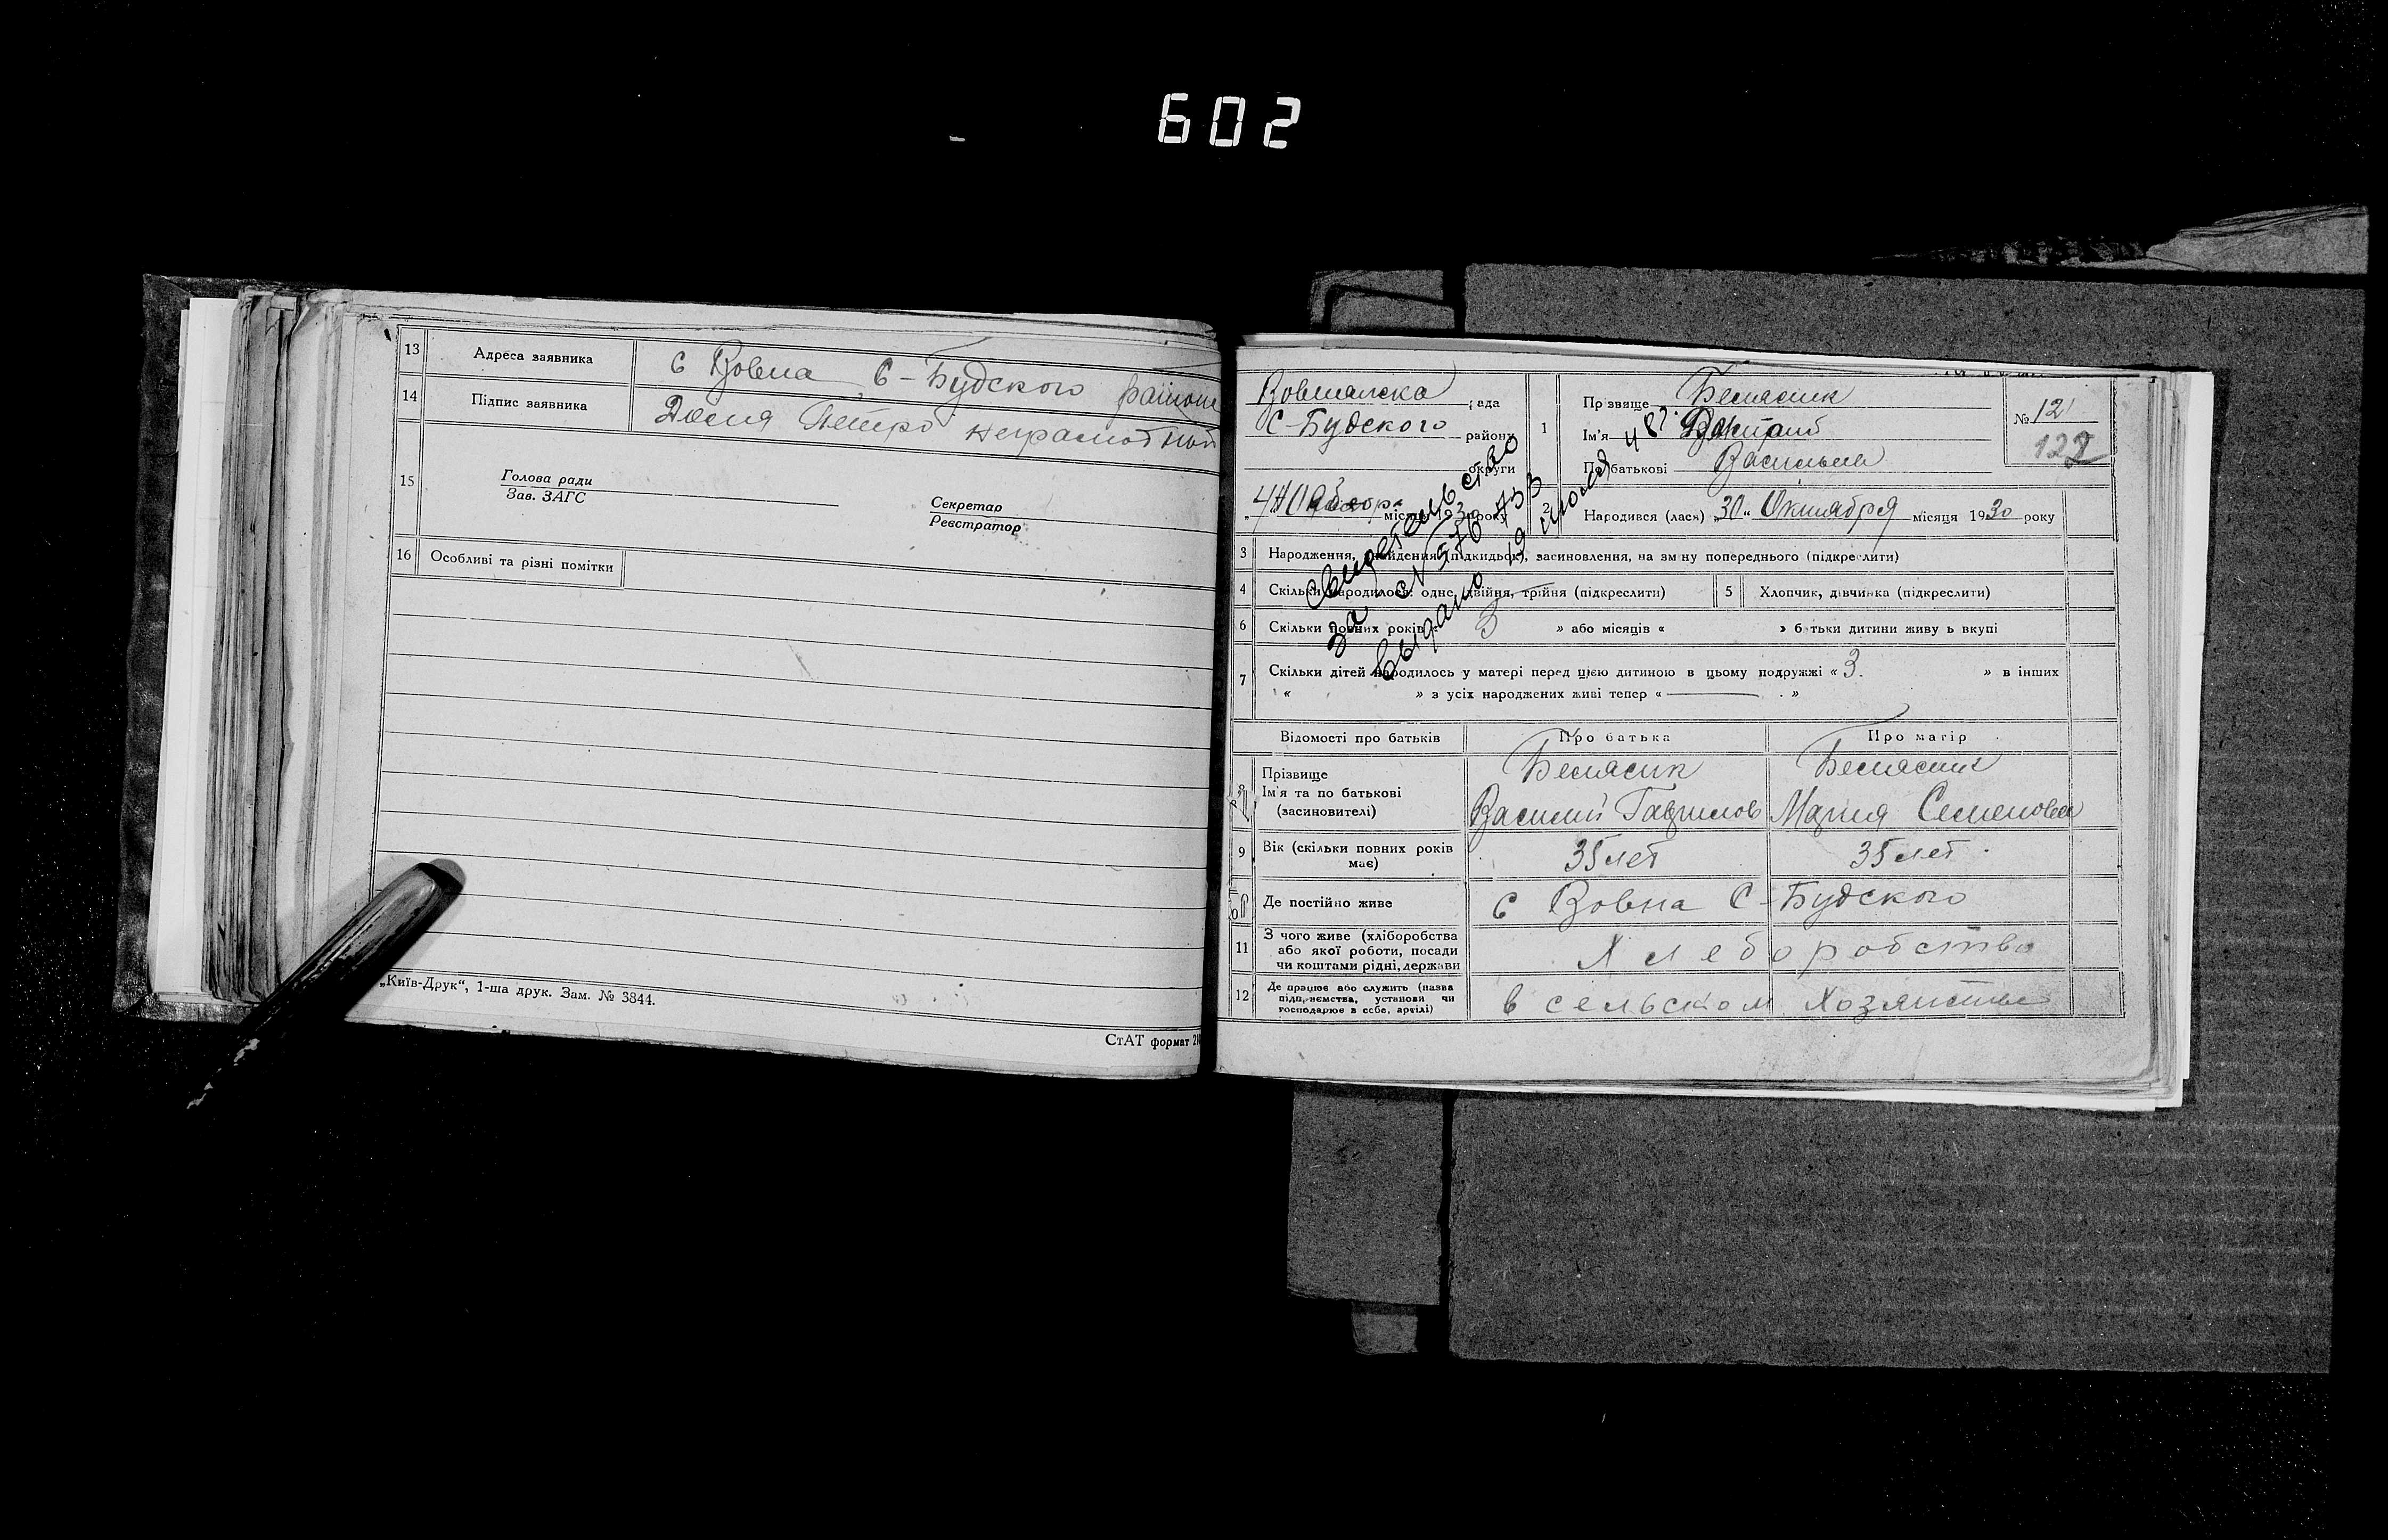 602
13 Адреса заявника с Вовна С-Будского района
14 Підпис заявника Петро неграмотный
15 Голова ради
Зав. ЗАГС
Секретар
Реєстратор
16 Особливі та різні помітки
„Київ-Друк“, 1-ша друк. Зам. № 3844.
СтАТ формат
рада
С-Будского району
округи
місяця 1930 року
1 Прізвище
Ім'я
По батькові
№ 12
122
2 Народився (лась) „30“ Октября місяця 1930 року
Свидетельство
за № 576433
выдано 19 июля 48 г.
3 Народження, знайдення (підкидьок), засиновлення, на зміну попереднього (підкреслити)
4 Скільки народилось: одне, двійня, трійня (підкреслити)
5 Хлопчик, дівчинка (підкреслити)
6 Скільки повних років « 3 » або місяців « » батьки дитини живуть вкупі
7 Скільки дітей народилось у матері перед цією дитиною в цьому подружжі « 3. » в інших
« » з усіх народжених живі тепер « — »
Відомості про батьків Про батька Про матір
8 Прізвище
Ім'я та по батькові Василий Гаврилов Мария Семеновна
(засиновителі)
9 Вік (скільки повних років має) 35 лет 35 лет
10 Де постійно живе с Вовна С-Будского
11 З чого живе (хліборобства або якої роботи, посади чи коштами рідні, держави Хлеборобство
12 Де працює або служить (назва підприємства, установи чи господарює в себе, артілі) в сельском хозяистве